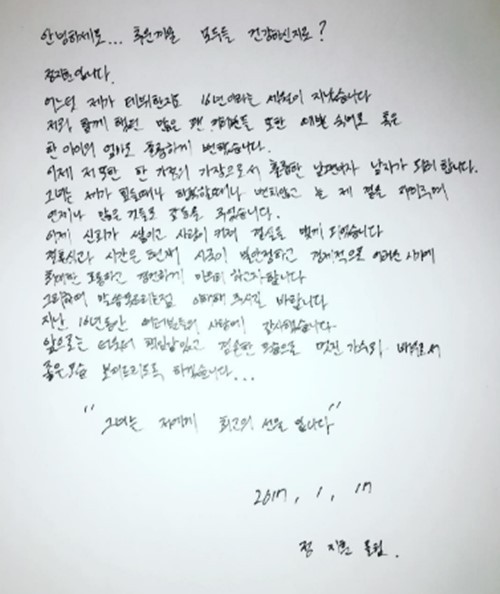 안녕하세요... 추운겨울 모두들 건강하신지요?
정지훈입니다.
어느덧 제가 데뷔한지도 16년이라는 세월이 지났습니다
저와 함께 했던 많은 팬 여러분들 또한 숙녀로 혹은
한 아이의 엄마로 훌륭하게 변했습니다.
이제 저 또한 한 가정의 가장으로서 훌륭한 남편이자 남자가 되려 합니다.
그녀는 제가 힘들때나 행복할때나 변치않고 늘 제 곁을 지켜주며
언제나 많은 것들로 감동을 주었습니다.
이제 신뢰가 쌓이고 사랑이 커져 결실을 맺게 되었습니다
결혼식과 시간은 현재 시국이 불안정하고 경제적으로 어려운 시기에
최대한 조용하고 경건하게 마무리 하고자합니다
그리하여 말씀못드리는점 이해해 주시길 바랍니다
지난 16년동안 여러분들의 사랑에 감사했습니다
앞으로는 더욱더 책임감있고 겸손한 모습으로 멋진 가수와 배우로서
좋은모습 보여드리도록 하겠습니다...
"그녀는 저에게 최고의 선물 입니다"
2017, 1, 17
정 지훈 올림.